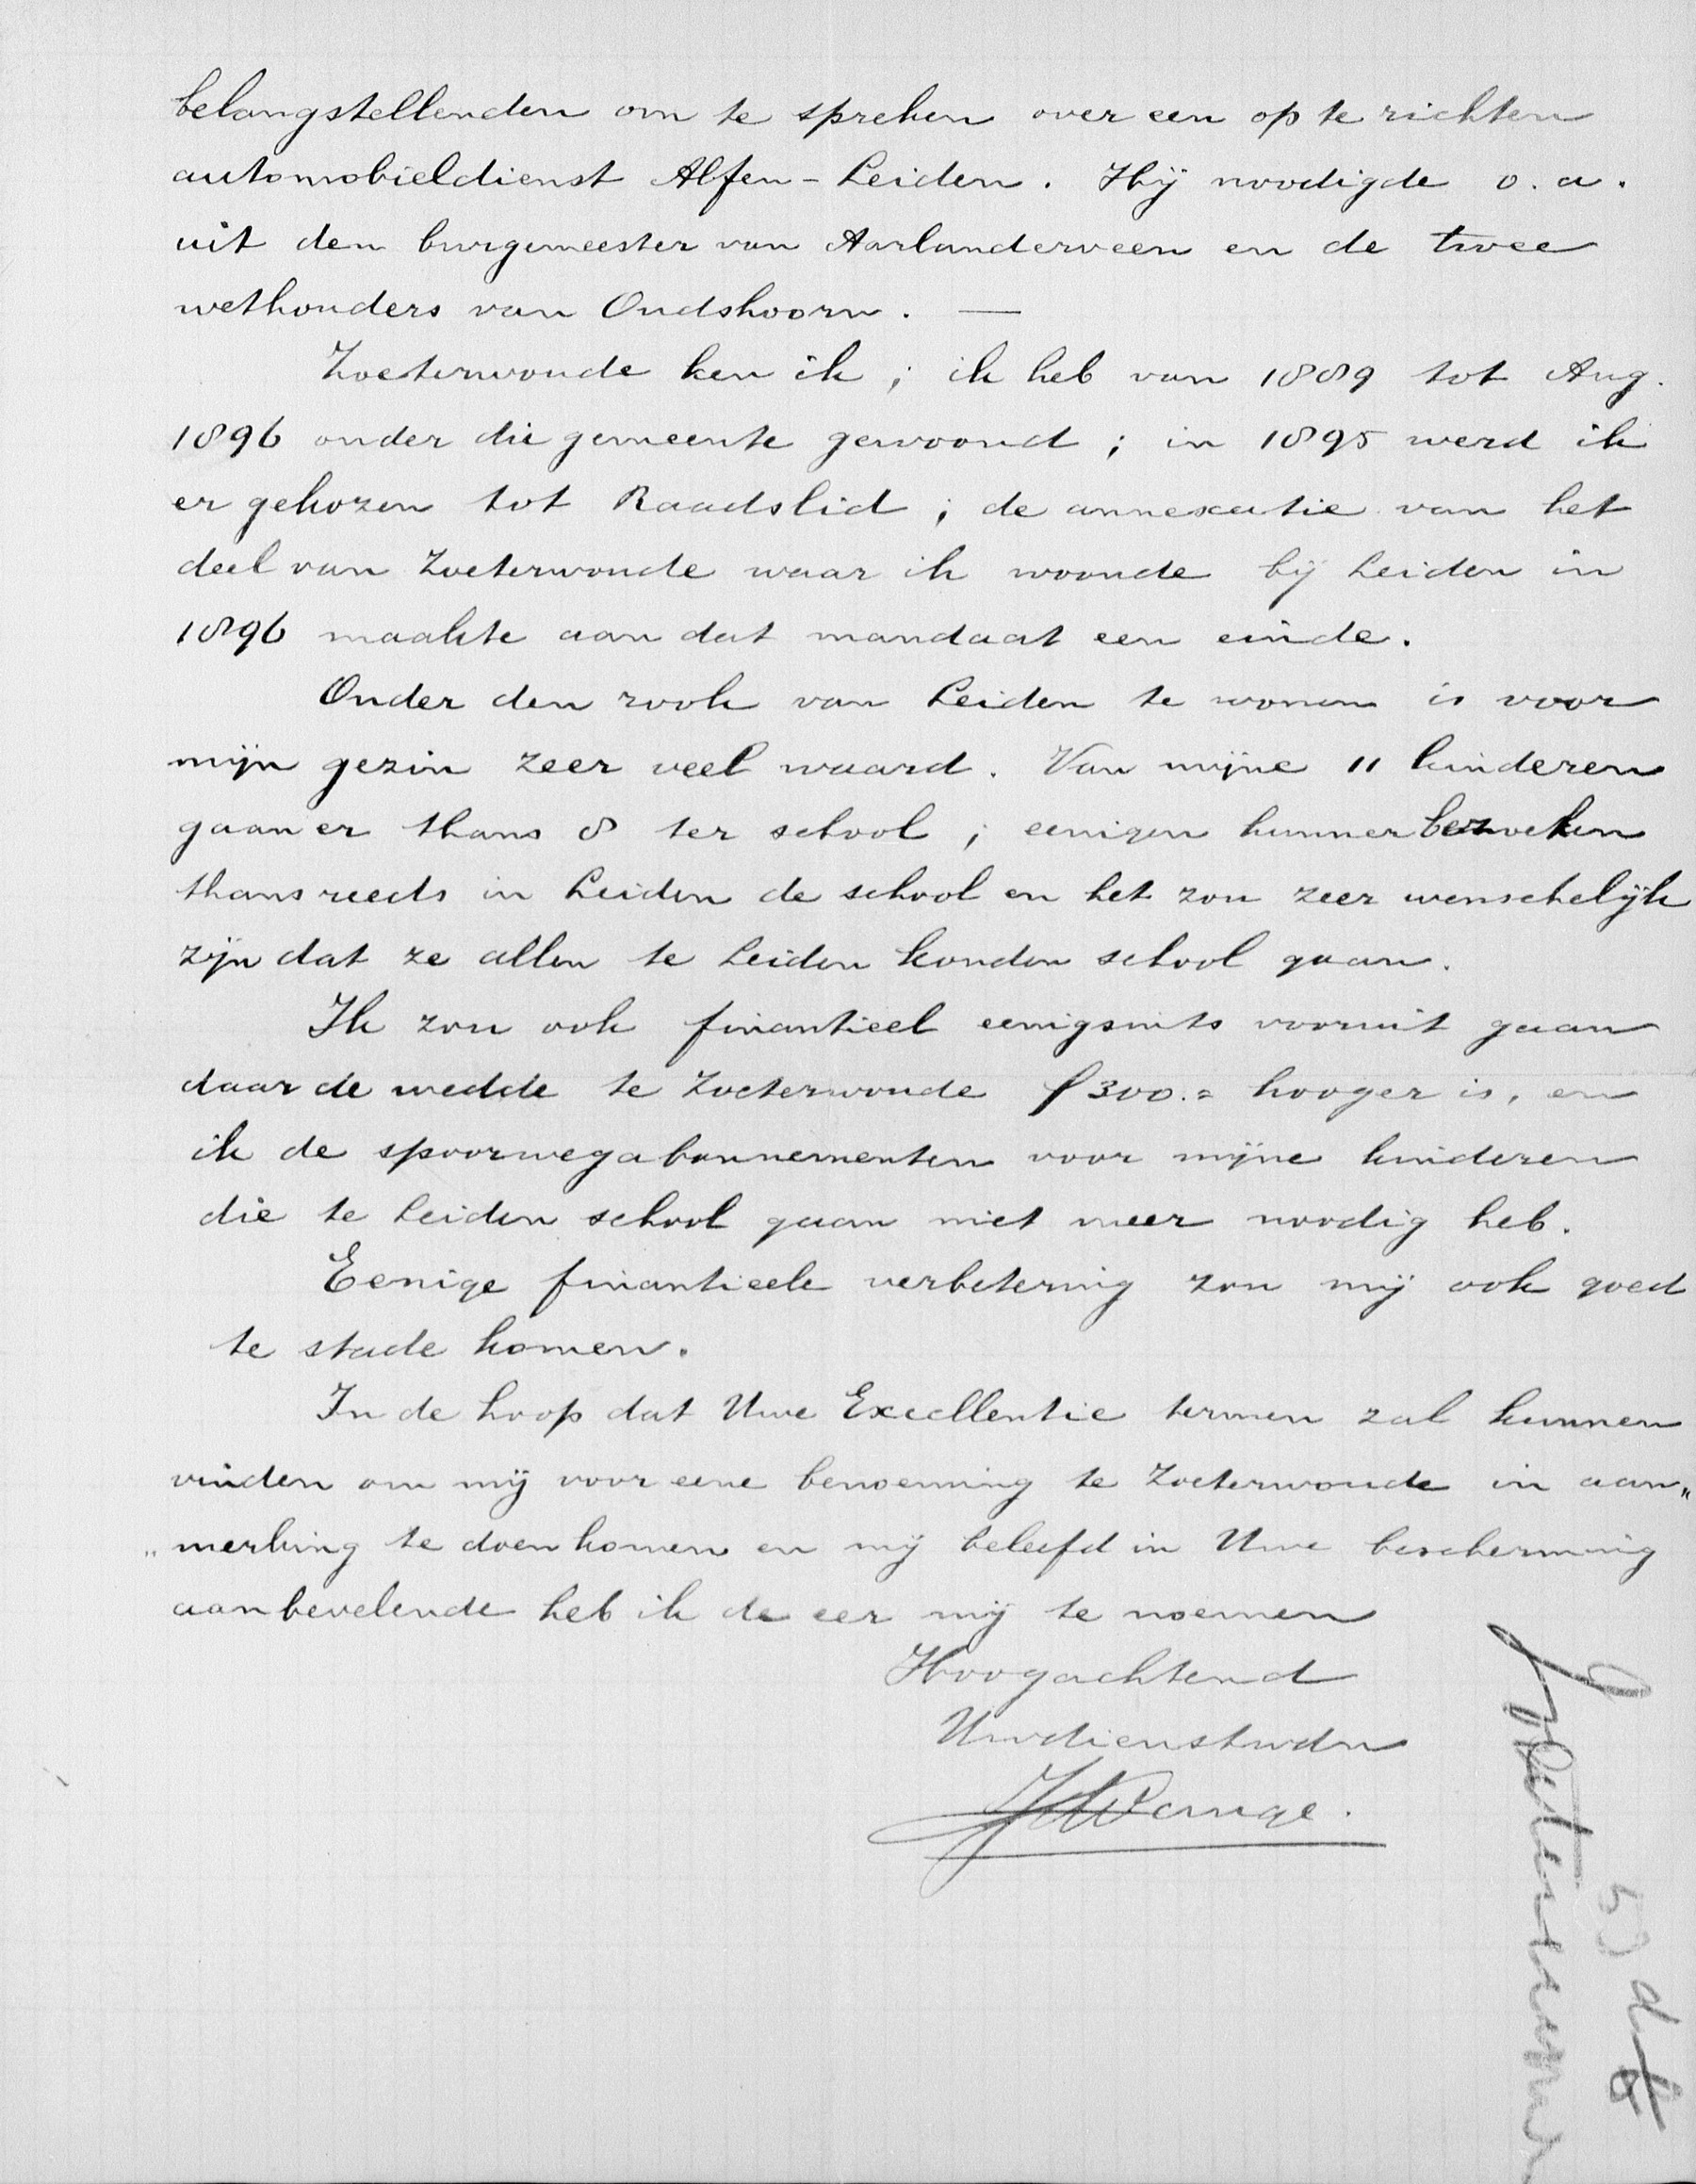 belangstellenden om te spreken over een op te richten
automobieldienst Alfen-Leiden. Hij noodigde o.a.
uit den burgemeester van Aarlanderveen en de twee
wethouders van Oudshoorn. —
Zoeterwoude ken ik; ik heb van 1889 tot Aug.
1896 onder die gemeente gewoond; in 1895 werd ik
er gekozen tot Raadslid; de annexatie van het
deel van Zoeterwoude waar ik woonde bij Leiden in
1896 maakte aan dat mandaat een einde.
Onder den rook van Leiden te wonen is voor
mijn gezin zeer veel waard. Van mijne 11 kinderen
gaan er thans 8 ter school; eenigen hunner bezoeken
thans reeds in Leiden de school en het zou zeer wenschelijk
zijn dat ze allen te Leiden konden school gaan.
Ik zou ook finantieel eenigsints vooruit gaan
daar de wedde te Zoeterwoude f 300.= hooger is, en
ik de spoorwegabonnementen voor mijne kinderen
die te Leiden school gaan niet meer noodig heb.
Eenige finantieele verbetering zou mij ook goed
te stade komen.
In de hoop dat Uwe Excellentie termen zal kunnen
vinden om mij voor eene benoeming te Zoeterwoude in aan„
„merking te doen komen en mij beleefd in Uwe bescherming
aanbevelende heb ik de eer mij te noemen
Hoogachtend
Uwdienstwdn